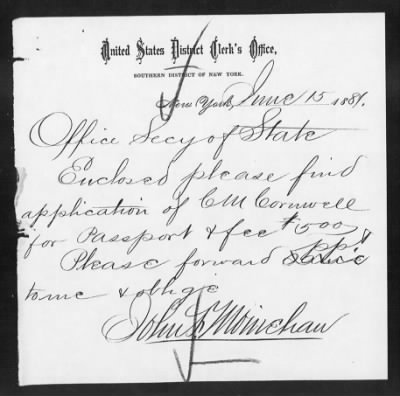 United States District Clerk's Office,
SOUTHERN DISTRICT OF NEW YORK.
New York, June 15 1881.
Office Secy of State
Enclosed please find
application of C M Cornwell
for Passport & fee $500
Please forward ppt
to me & oblige
John